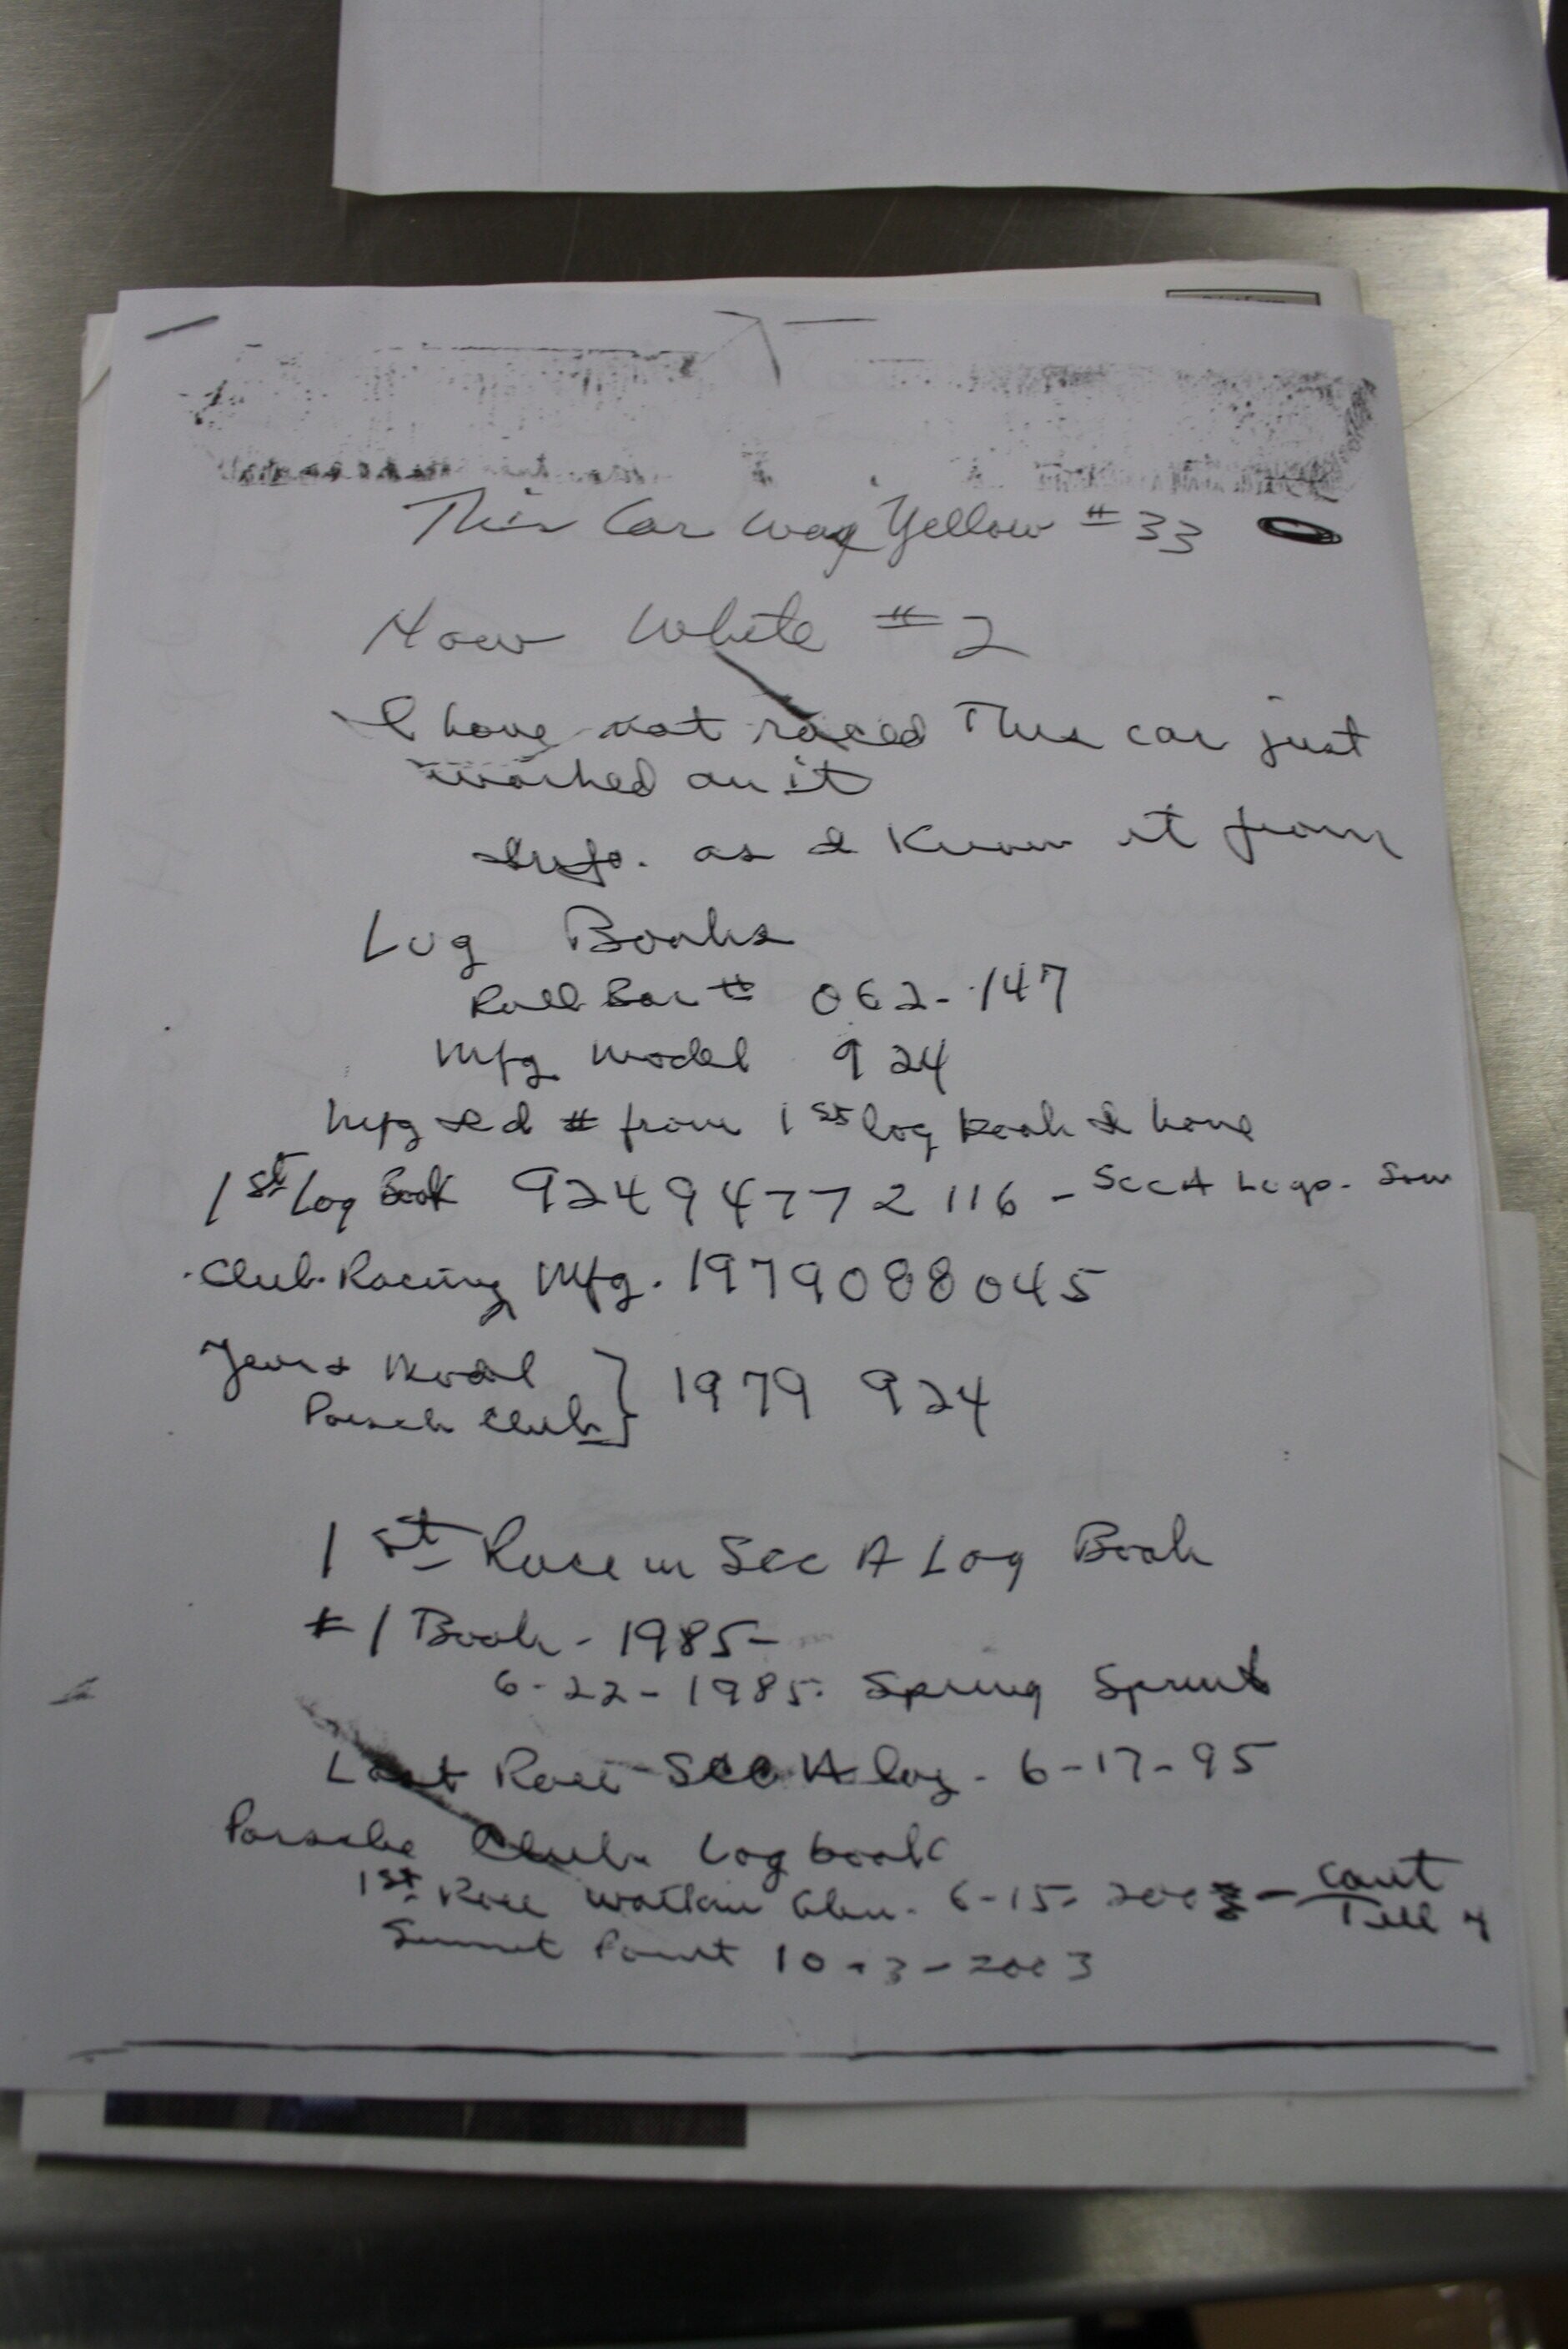 This Car was Yellow # 33
Now White # 2
I have not raced This car just
worked on it
Info. as I Know it from
Log Books
Roll Bar # 062-147
Mfg model 924
Mfg Id # from 1st log book I have
1st Log Book 92494772116 - SccA Logs.
Club Racing Mfg. 1979088045
Year & Model } 1979 924
Porsch Club
1st Race in SccA Log Book
#1 Book - 1985-
6-22-1985. Spring Sprint
Last Race SccA log - 6-17-95
Porsche Club Log book
1st Race Watkins Glen. 6-15- - cont
Till
Summit Point 10-3-2003